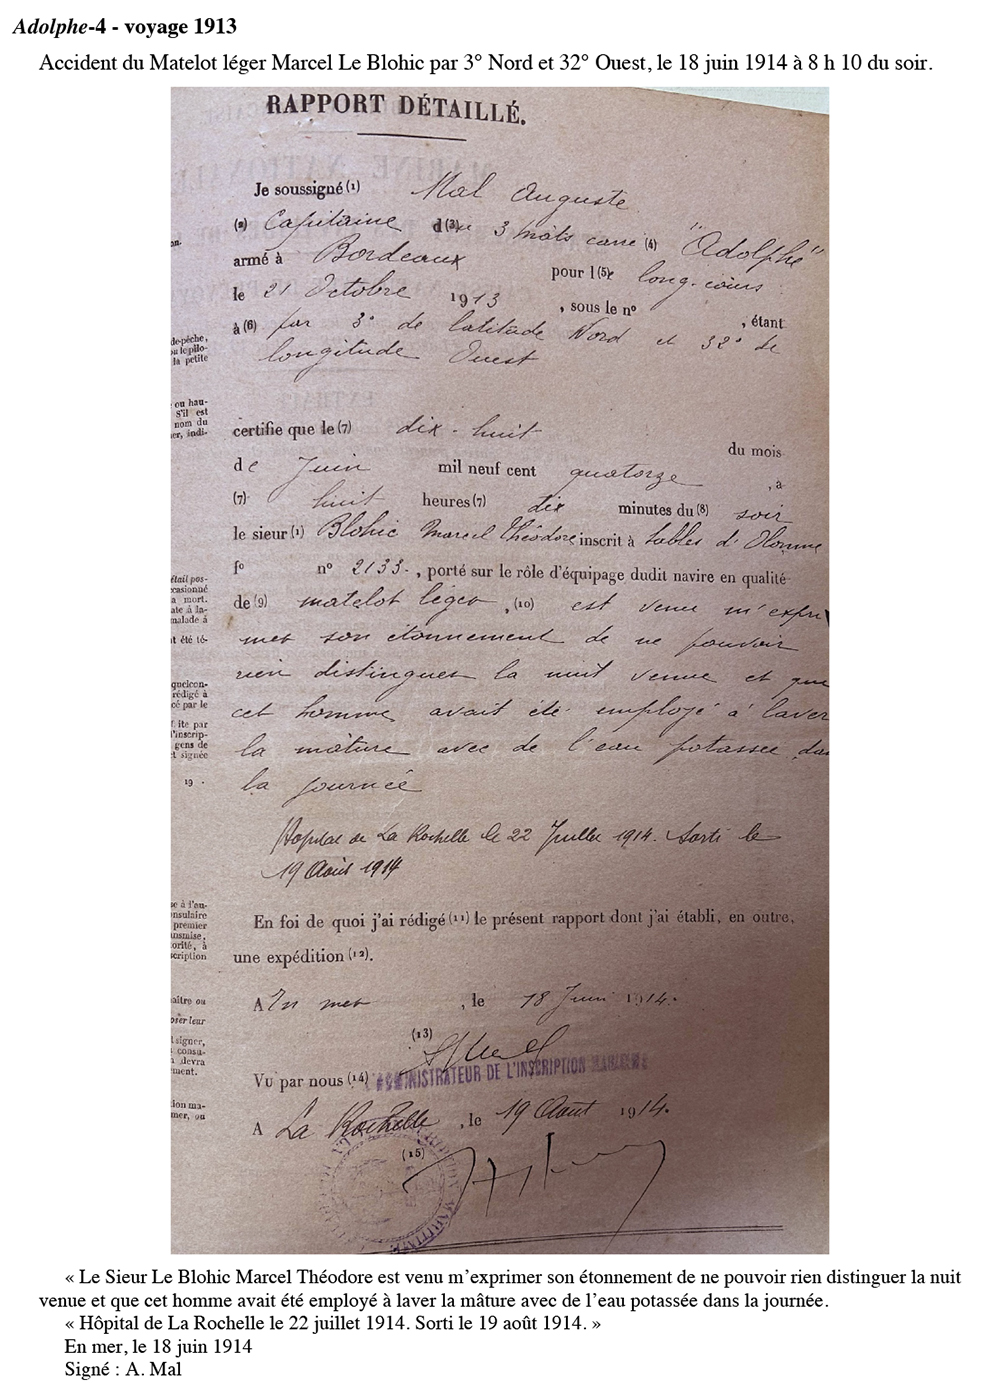 Adolphe-4 - voyage 1913
Accident du Matelot léger Marcel Le Blohic par 3° Nord et 32° Ouest, le 18 juin 1914 à 8 h 10 du soir.
RAPPORT DÉTAILLÉ.
Je soussigné (1) Mal Auguste
(2) Capitaine d(3)u 3 mâts carré (4) "Adolphe"
armé à Bordeaux pour l (5)e long-cours
le 21 Octobre 1913, sous le n° , étant
à (6) par 3° de latitude Nord et 32° de
longitude Ouest
certifie que le (7) dix-huit du mois
de Juin mil neuf cent quatorze, à
(7) huit heures (7) dix minutes du (8) soir
le sieur (1) Blohic Marcel Théodore inscrit à Sables d'Olonne
f° n° 2133-, porté sur le rôle d'équipage dudit navire en qualité
de (9) matelot léger, (10) est venu m'expri
mer son étonnement de ne pouvoir
rien distinguer la nuit venue et que
cet homme avait été employé à laver
la mâture avec de l'eau potassée, da
la journée
Hôpital de La Rochelle le 22 Juillet 1914. Sorti le
19 Août 1914
En foi de quoi j'ai rédigé (11) le présent rapport dont j'ai établi, en outre,
une expédition (12).
A En mer, le 18 Juin 1914.
(13)
Vu par nous (14) ADMINISTRATEUR DE L'INSCRIPTION MARITIME
A La Rochelle, le 19 Août 1914.
(15)
on.
de pêche,
ou le pilo-
la petite
ou hau-
S'il est
nom du
er, indi-
étail pos-
ccasionné
a mort.
ate à la-
malade à
t été té-
quelcon-
rédigé à
cé par le
ite par
l'inscrip-
gens de
et signée
19 .
se à l'au-
nsulaire
premier
ansmise,
orité, à
scription
naître ou
oser leur
l signer,
consu-
a devra
ment.
tion ma-
mer, ou
« Le Sieur Le Blohic Marcel Théodore est venu m’exprimer son étonnement de ne pouvoir rien distinguer la nuit
venue et que cet homme avait été employé à laver la mâture avec de l’eau potassée dans la journée.
« Hôpital de La Rochelle le 22 juillet 1914. Sorti le 19 août 1914. »
En mer, le 18 juin 1914
Signé : A. Mal